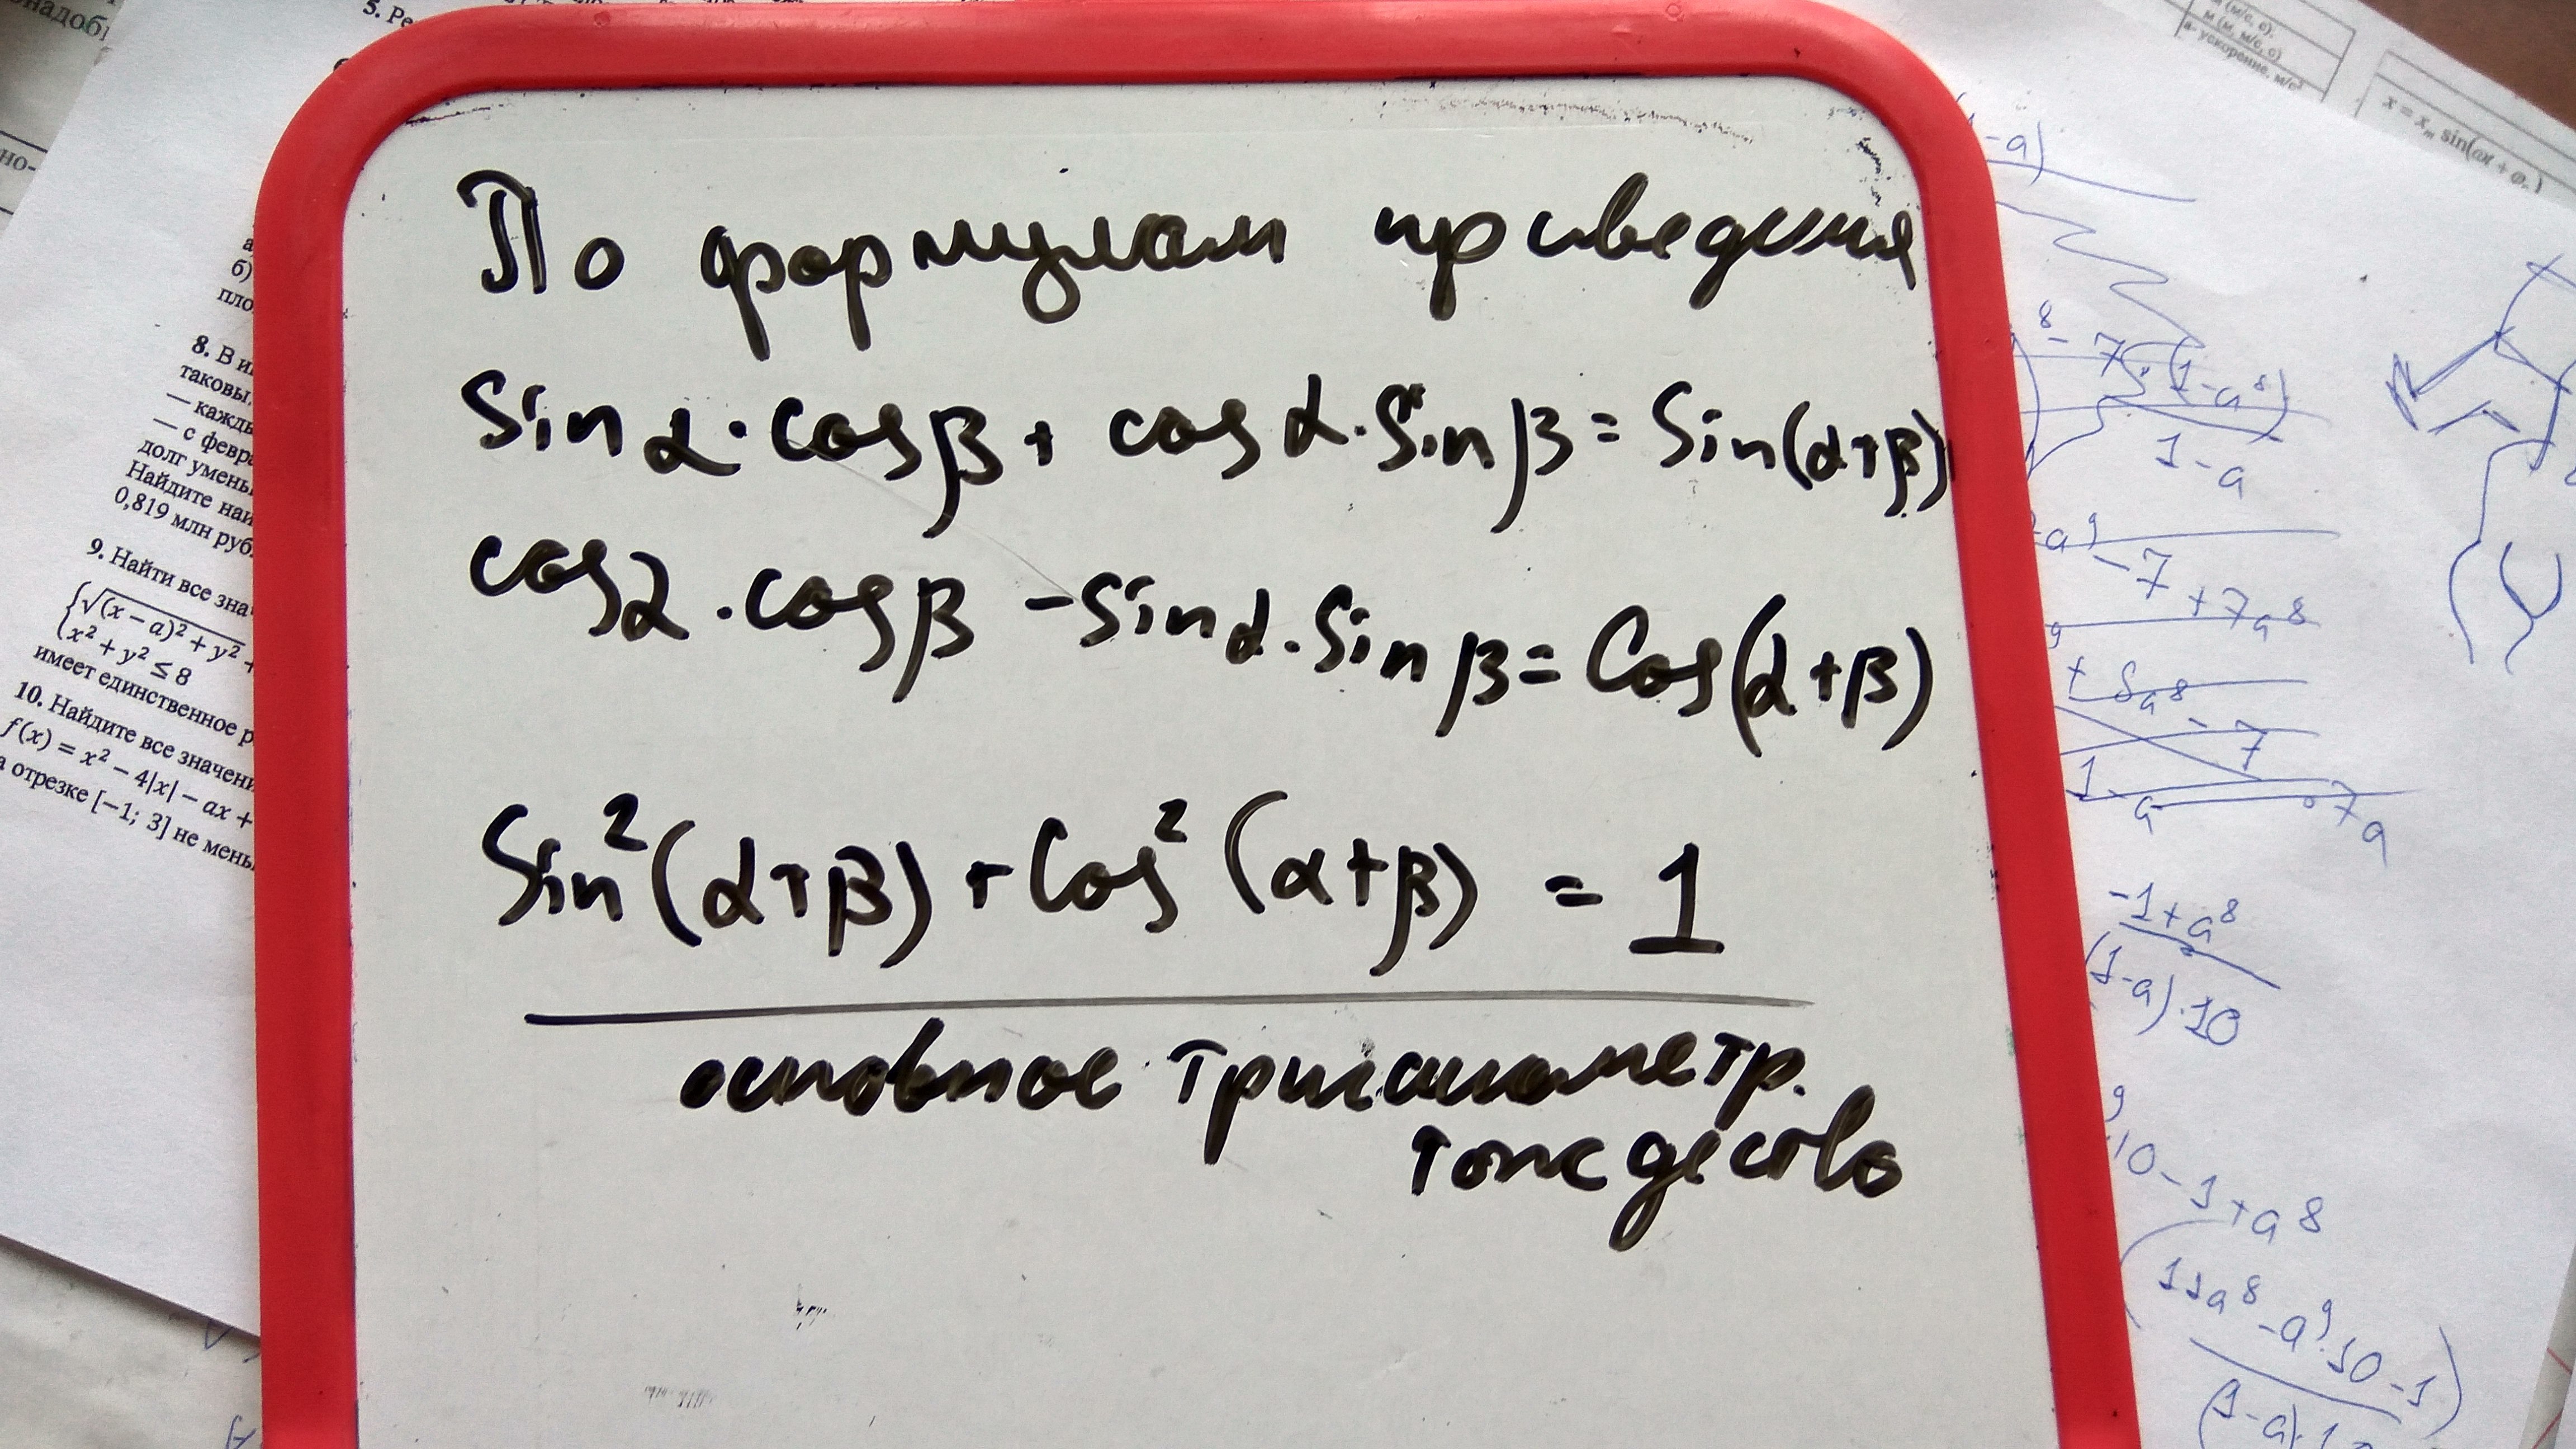 По формулам приведения
Sin α · cos β + cos α · Sin β = Sin(α+β)
cos α · cos β - Sin α · Sin β = Cos(α+β)
Sin²(α+β) + Cos²(α+β) = 1
основное тригонометр.
тождество
5. Ре
б)
пло
8. В и
таковы
— кажды
— с февра
долг умень
Найдите наи
0,819 млн руб.
9. Найти все зна
{√(x − a)² + y² +
x² + y² ≤ 8
имеет единственное р
10. Найдите все значени
f(x) = x² − 4|x| − ax +
а отрезке [−1; 3] не мень
м (м, м/с, с)
a- ускорение, м/с²
x = xₘ sin(ωt + φ₀)
-a)
8 - 7 · (1-a⁸)
1-a
a⁹ - 7 + 7a⁸
-1+a⁸
(1-a)·10
10-1+a⁸
11a⁸ -a⁹·10 -1